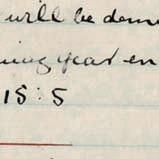 will be dem
ning year en
15 : 5